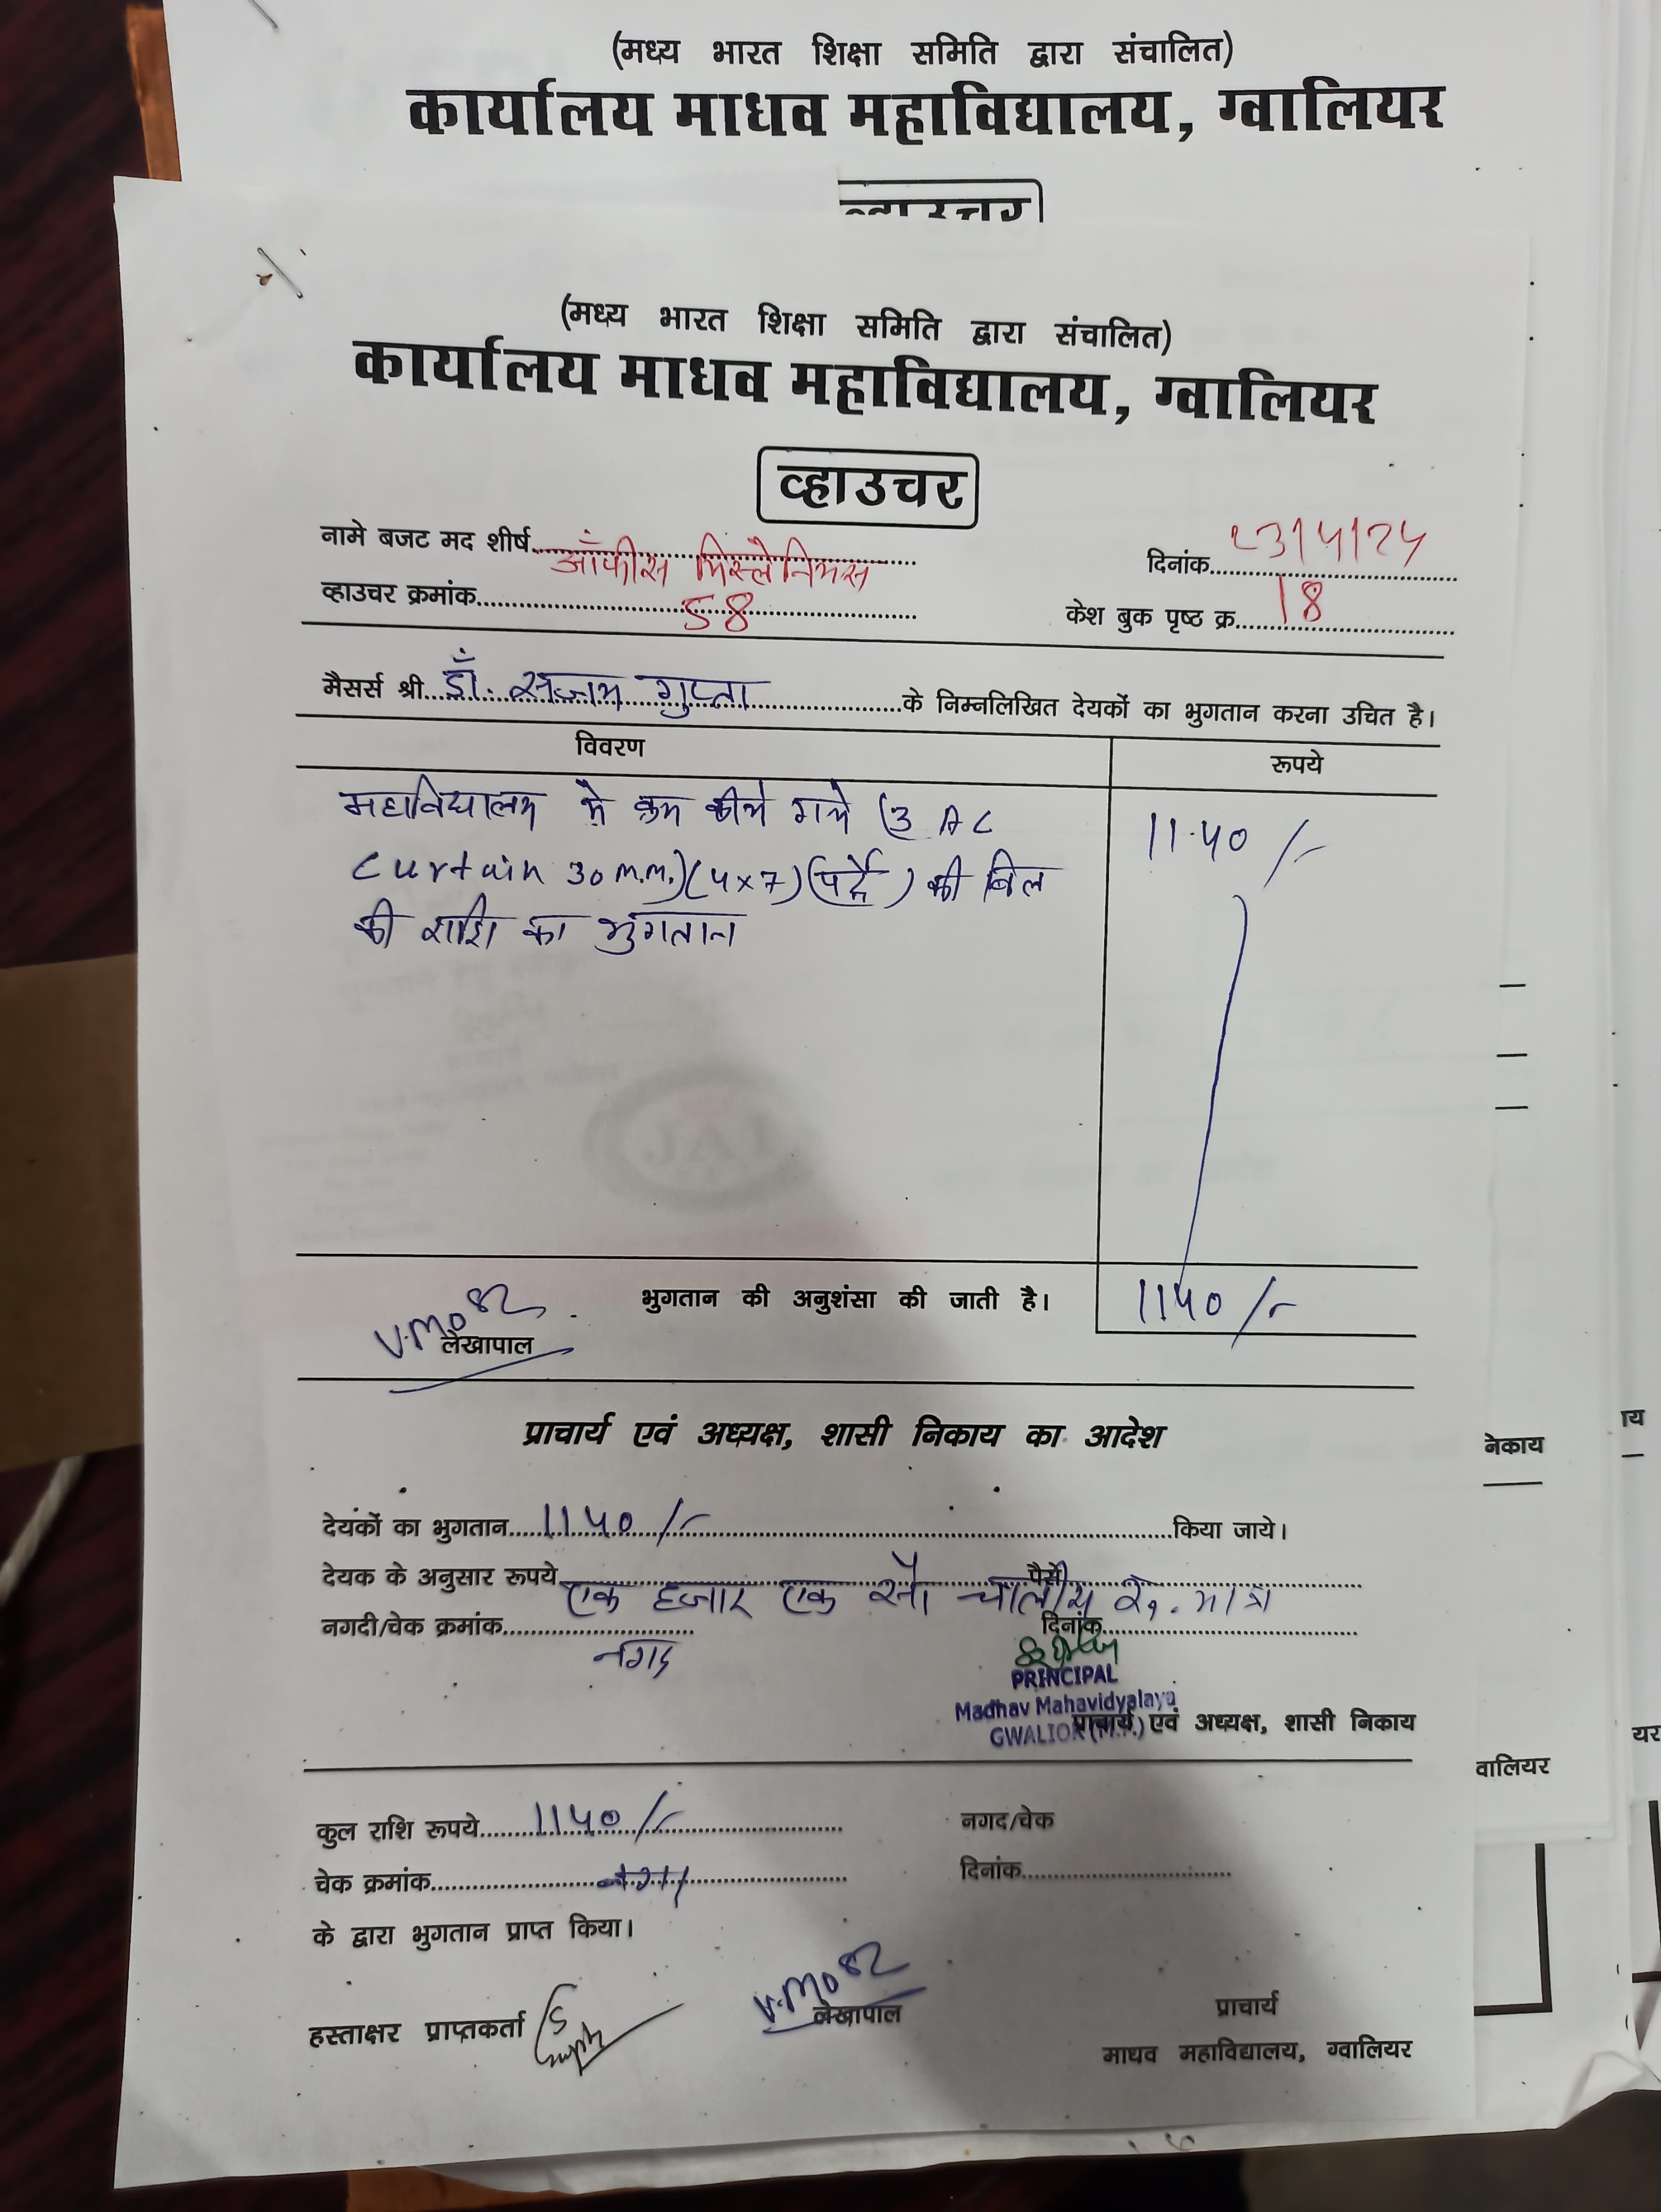 (मध्य भारत शिक्षा समिति द्वारा संचालित)
कार्यालय माधव महाविद्यालय, ग्वालियर
व्हाउचर
(मध्य भारत शिक्षा समिति द्वारा संचालित)
कार्यालय माधव महाविद्यालय, ग्वालियर
व्हाउचर
नामे बजट मद शीर्ष ऑफीस मिस्लैनियस दिनांक 23/4/24
व्हाउचर क्रमांक 58 केश बुक पृष्ठ क्र. 18
मैसर्स श्री डॉ. संजय गुप्ता के निम्नलिखित देयकों का भुगतान करना उचित है।
विवरण रूपये
महाविद्यालय मे क्रय कीये गये (3 AC 1140/-
Curtain 30 m.m.) (4x7) (पर्दे) की बिल
की राशि का भुगतान
भुगतान की अनुशंसा की जाती है। 1140/-
लेखापाल
प्राचार्य एवं अध्यक्ष, शासी निकाय का आदेश
देयकों का भुगतान 1140/- किया जाये।
देयक के अनुसार रूपये एक हजार एक सौ चालीस रू. मात्र पैसे
नगदी/चेक क्रमांक नगद दिनांक
PRINCIPAL
Madhav Mahavidyalaya
GWALIOR (M.P.)
प्राचार्य एवं अध्यक्ष, शासी निकाय
कुल राशि रूपये 1140/- नगद/चेक
चेक क्रमांक दिनांक
के द्वारा भुगतान प्राप्त किया।
हस्ताक्षर प्राप्तकर्ता लेखापाल प्राचार्य
माधव महाविद्यालय, ग्वालियर
नेकाय
वालियर
ाय
यर